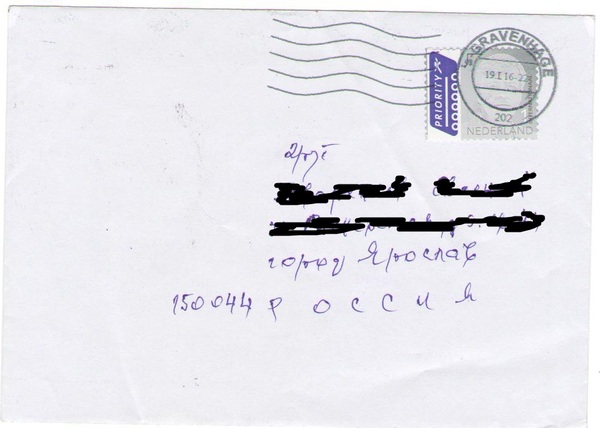 'S-GRAVENHAGE
19.I.16-22
202
PRIORITY
NEDERLAND
город Ярослав
150044 Россия